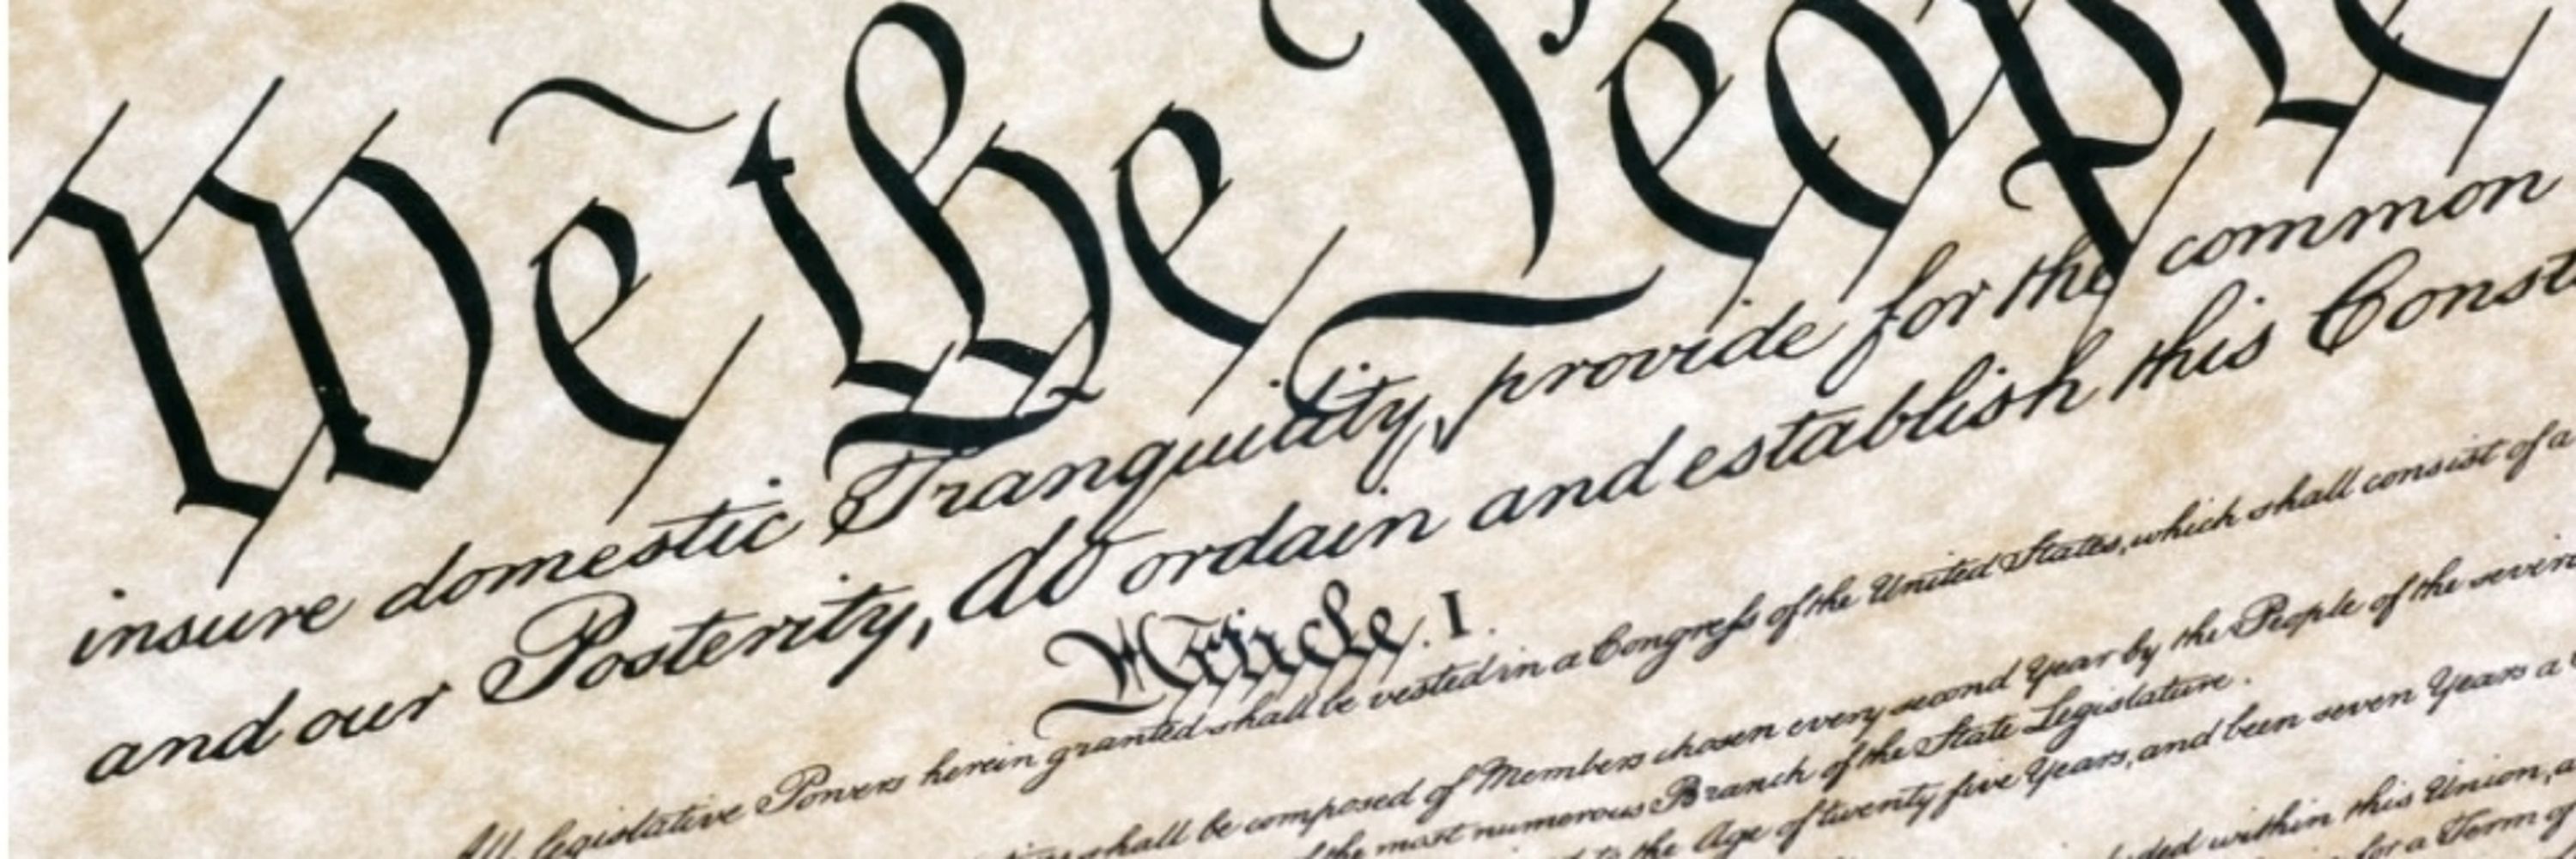 We the People
insure domestic Tranquility, provide for the common
and our Posterity, do ordain and establish this Const
Article. I.
All legislative Powers herein granted shall be vested in a Congress of the United States, which shall consist of a
shall be composed of Members chosen every second Year by the People of the sever
the most numerous Branch of the State Legislature.
to the Age of twenty five Years, and been seven Years a
within this Union, a
for a Term of